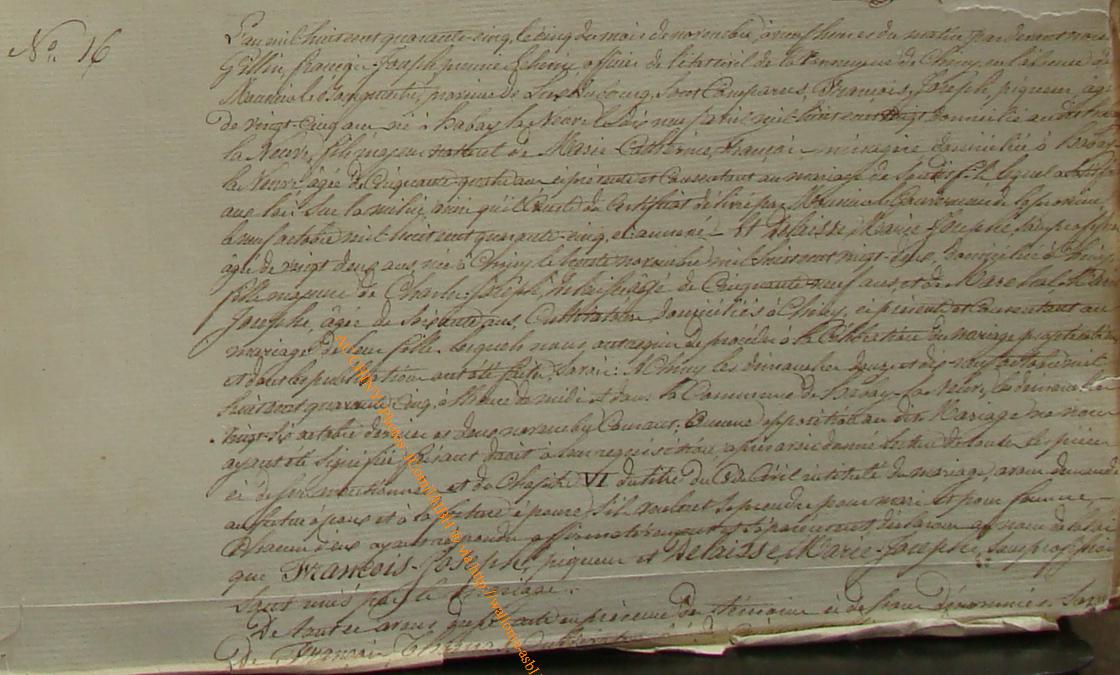 No. 16
L'an mil huit cent quarante-cinq, le cinq du mois de novembre à neuf heures du matin, par devant nous
Gillin, françois-Joseph officier de l'état civil de la Commune de Chiny, en l'absence du
province de Luxembourg, sont Comparus, François, Joseph, piqueur, âgé
de vingt-Cinq ans, né à habay la Neuve mil huit cent vingt domicilié au dit
la Neuve, fils majeur naturel de Marie Catherine, François ménagère domiciliée à habay
la Neuve, âgée de Cinquante quatre ans ci présente et Consentant au mariage de Son dit fils, lequel a satisfait
aux lois Sur la milice, ainsi qu'il Conste du Certificat délivré par Monsieur le Gouverneur de la province,
le neuf octobre mil huit cent quarante-cinq, et Delaisse, Marie-Josephe, Sans profession
âgée de vingt deux ans, née à Chiny, le trente novembre mil huit cent vingt-deux, domiciliée à Chiny
fille majeure de Charle-Joseph, Delaisse âgé de Cinquante neuf ans, et de Marechal
Josephe, âgée de Soixante ans, Cultivateurs domiciliés à Chiny, ci présents et Consentant au
mariage de leur fille lesquels nous ont requis de procéder à la Célébration du mariage projeté entre
et dont les publications ont été faites, Savoir: à Chiny les dimanches douze et dix-neuf octobre mil
huit cent quarante Cinq, à l'heure de midi et dans la Commune de Habay-la-Neuve, les dimanches
vingt-six octobre dernier et deux novembre Courant, Aucune opposition au dit Mariage ne nous
ayant été Signifiée, faisant droit à leur requisition, après avoir donné lecture de toutes les pièces
ci dessus mentionnées et du Chapitre VI du titre du Code Civil intitulé du mariage, avons demandé
au futur époux et à la future épouse S'ils veulent Se prendre pour mari et pour femme,
Chacun d'eux ayant répondu affirmativement et Séparément, déclarons au nom de la loi
que François-Joseph, piqueur et Delaisse, Marie-Josephe, Sans profession
Sont unis par le Mariage.
De tout ce avons dressé acte en présence des témoins ci dessous dénommés. Savoir
De François
ARCHINY@Photos JLCompère (GH) ® via http://wallonia-asbl